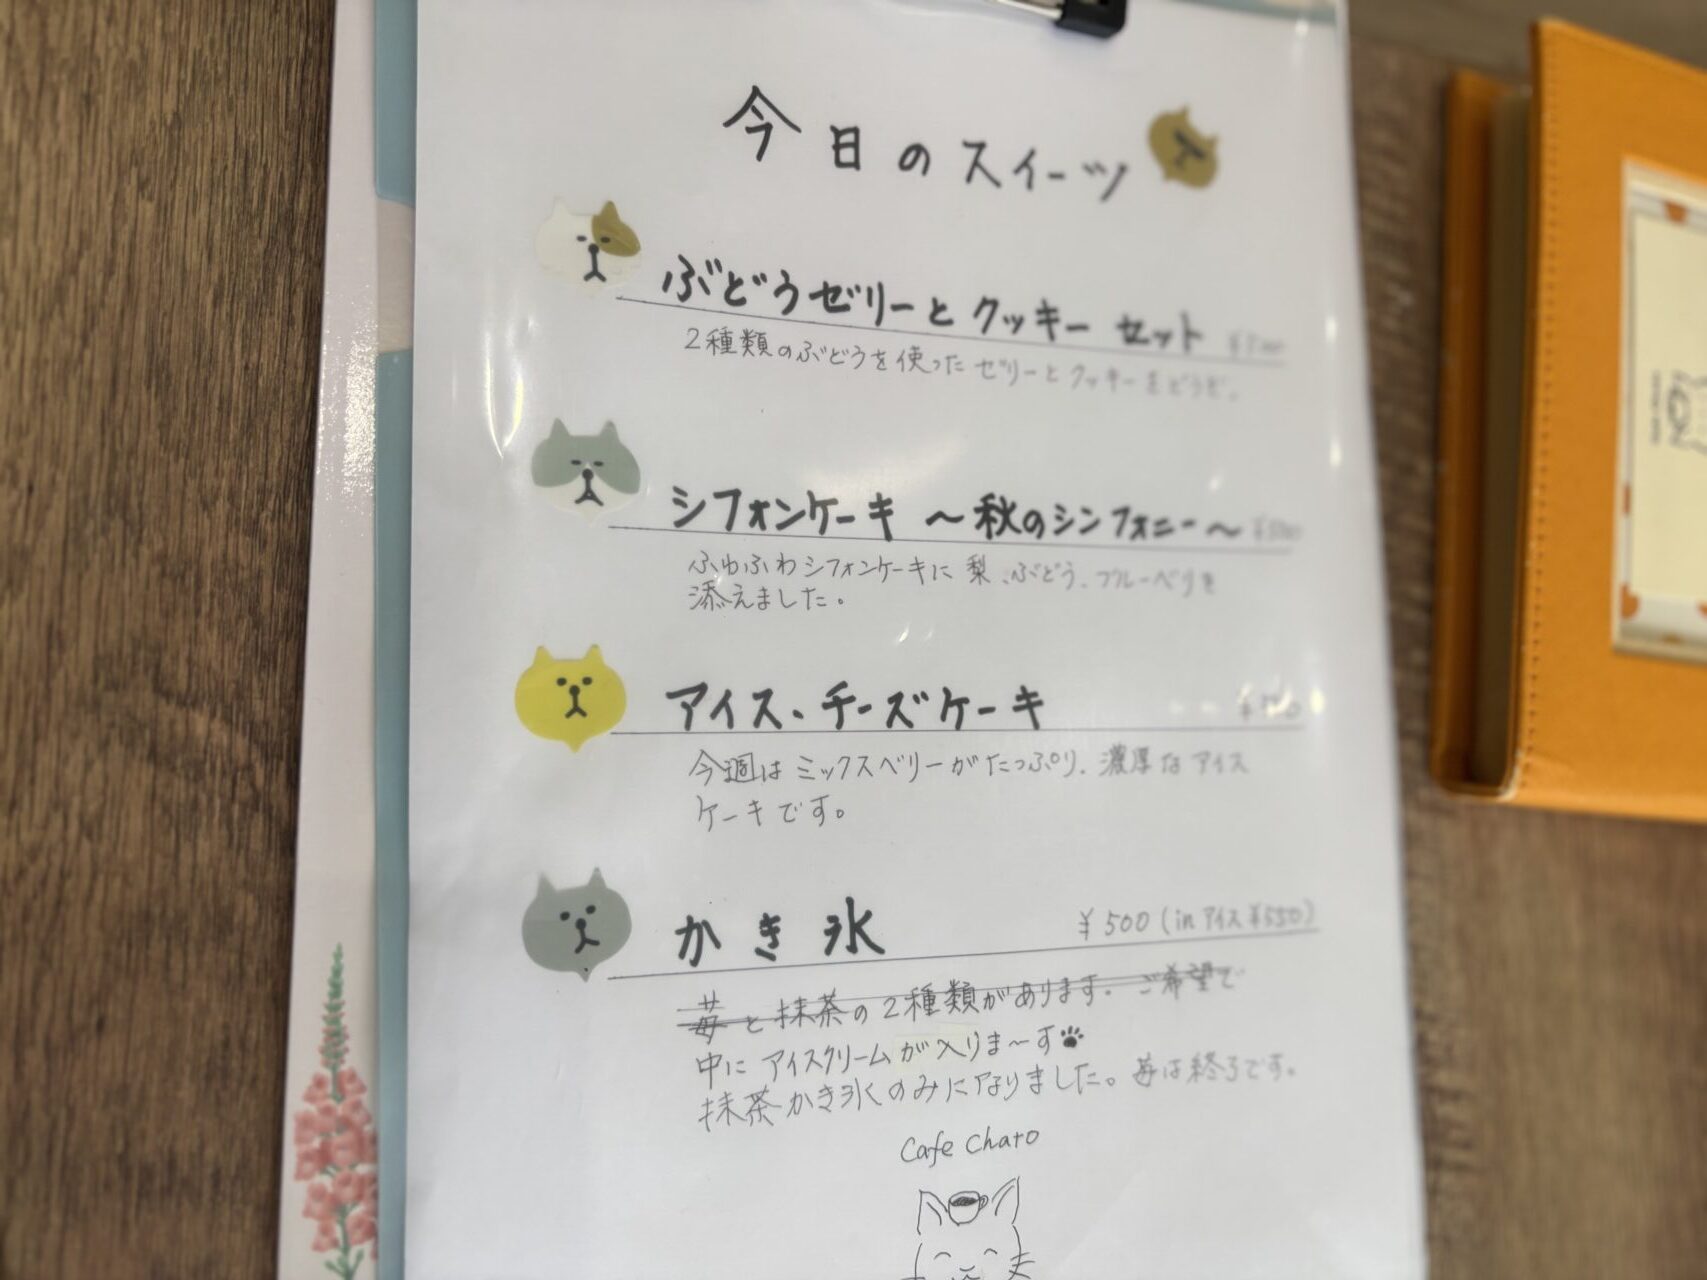 今日のスイーツ
ぶどうゼリーとクッキーセット
2種類のぶどうを使ったゼリーとクッキーをどうぞ。
シフォンケーキ ～秋のシンフォニー～
ふわふわシフォンケーキに梨、ぶどう、ブルーベリを
添えました。
アイス、チーズケーキ
今週はミックスベリーがたっぷり、濃厚なアイス
ケーキです。
かき氷 ¥500(inアイス¥550)
苺と抹茶の2種類があります。ご希望で
中にアイスクリームが入りま～す
抹茶かき氷のみになりました。苺は終了です。
Cafe Chato